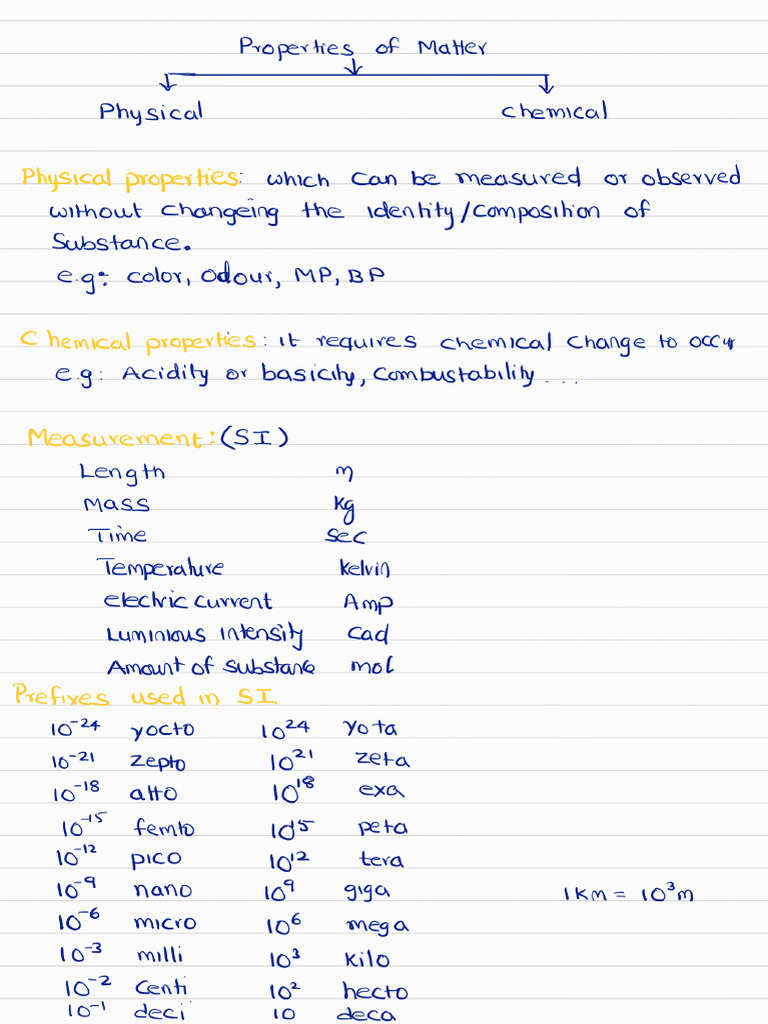 Properties of Matter
Physical Chemical
Physical properties: which can be measured or observed
without changeing the identity/composition of
Substance.
e.g: color, odour, MP, BP
Chemical properties: it requires chemical change to occur
e.g: Acidity or basicity, Combustability...
Measurement: (SI)
Length m
Mass kg
Time sec
Temperature kelvin
electric current Amp
Luminious intensity Cad
Amount of substance mol
Prefixes used in SI
10⁻²⁴ yocto 10²⁴ yota
10⁻²¹ zepto 10²¹ zeta
10⁻¹⁸ atto 10¹⁸ exa
10⁻¹⁵ femto 10¹⁵ peta
10⁻¹² pico 10¹² tera
10⁻⁹ nano 10⁹ giga 1 Km = 10³m
10⁻⁶ micro 10⁶ mega
10⁻³ milli 10³ kilo
10⁻² Centi 10² hecto
10⁻¹ deci 10 deca